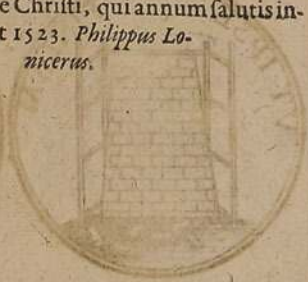 e Chriſti, qui annum ſalutis in-
t 1523. Philippus Lo-
nicerus.